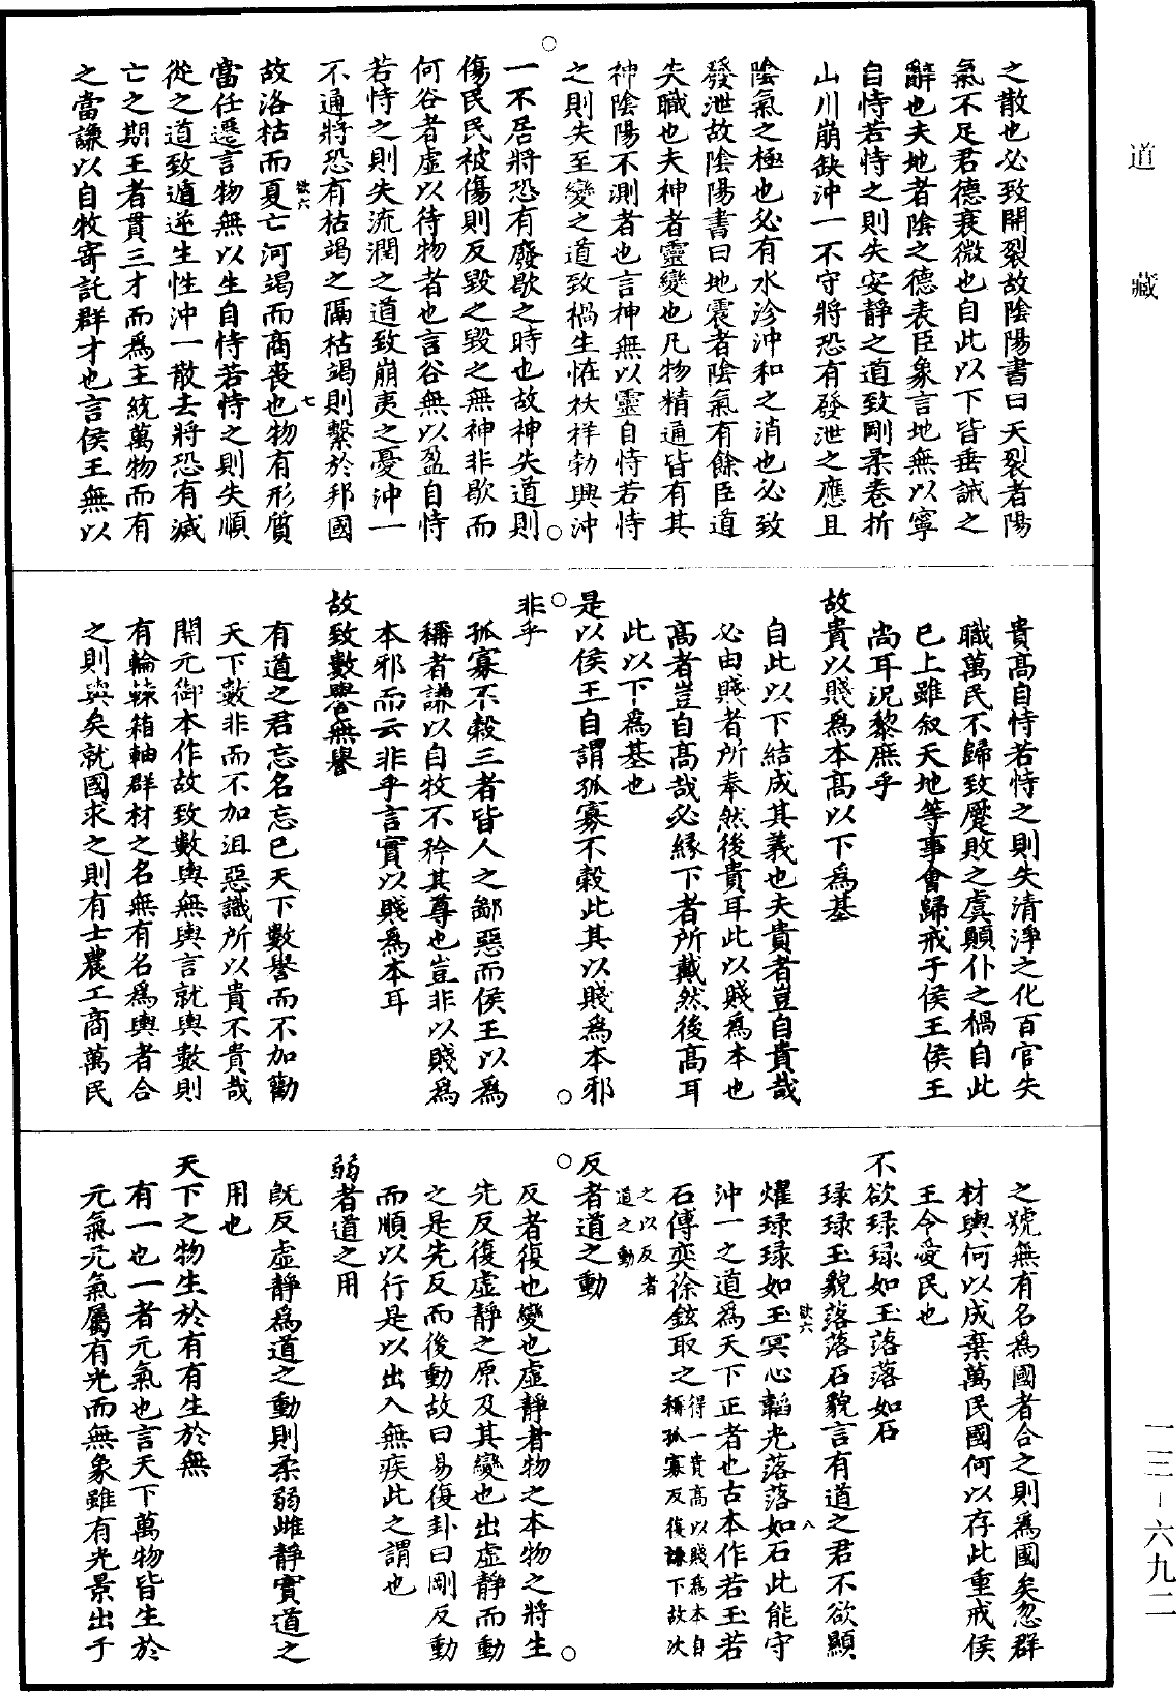 之散也必致開裂故陰陽書曰天裂者陽
氣不足君德衰微也自此以下皆垂誡之
辭也夫地者陰之德表臣象言地無以寧
自恃若恃之則失安靜之道致剛柔卷折
山川崩缺沖一不守將恐有發泄之應且
陰氣之極也必有水沴沖和之消也必致
發泄故陰陽書曰地震者陰氣有餘臣道
失職也夫神者靈變也凡物精通皆有其
神陰陽不測者也言神無以靈自恃若恃
之則失至變之道致禍生恠袄祥勃興沖
一不居將恐有廢歇之時也故神失道則
傷民民被傷則反毀之毀之無神非歇而
何谷者虛以待物者也言谷無以盈自恃
若恃之則失流潤之道致崩夷之憂沖一
不通將恐有枯竭之隔枯竭則繫於邦國
欲六
七
故洛枯而夏亡河竭而商喪也物有形質
當任遷言物無以生自恃若恃之則失順
從之道致遒逆生性沖一散去將恐有滅
亡之期王者貫三才而為主統萬物而有
之當謙以自牧寄託群才也言侯王無以
貴高自恃若恃之則失清淨之化百官失
職萬民不歸致蹷敗之虞顛仆之禍自此
已上雖叙天地等事會歸戒于侯王侯王
尚耳況黎庶乎
故貴以賤為本高以下為基
自此以下結成其義也夫貴者豈自貴哉
必由賤者所奉然後貴耳此以賤為本也
高者豈自高哉必緣下者所戴然後高耳
此以下為基也
是以侯王自謂孤寡不穀此其以賤為本邪
非乎
孤寡不穀三者皆人之鄙惡而侯王以為
稱者謙以自牧不矜其尊也豈非以賤為
本邪而云非乎言實以賤為本耳
故致數譽無譽
有道之君忘名忘己天下數譽而不加勸
天下數非而不加沮惡識所以貴不貴哉
開元御本作故致數輿無輿言就輿數則
有輪轅箱軸群材之名無有名為輿者合
之則輿矣就國求之則有士農工商萬民
之號無有名為國者合之則為國矣忽群
材輿何以成棄萬民國何以存此重戒侯
王令愛民也
不欲琭琭如玉落落如石
琭琭玉貌落落石貌言有道之君不欲顯
欲六
八
燿琭琭如玉冥心韜光落落如石此能守
沖一之道為天下正者也古本作若玉若
石傅奕徐鉉取之得一貴高以賤為本自
稱孤寡反復謙下故次
之以反者
道之動
反者道之動
反者復也變也虛靜者物之本物之將生
先反復虛靜之原及其變也出虛靜而動
之是先反而後動故曰易復卦曰剛反動
而順以行是以出入無疾此之謂也
弱者道之用
既反虛靜為道之動則柔弱雌靜實道之
用也
天下之物生於有有生於無
有一也一者元氣也言天下萬物皆生於
元氣元氣屬有光而無象雖有光景出于
道藏
一三–六九二